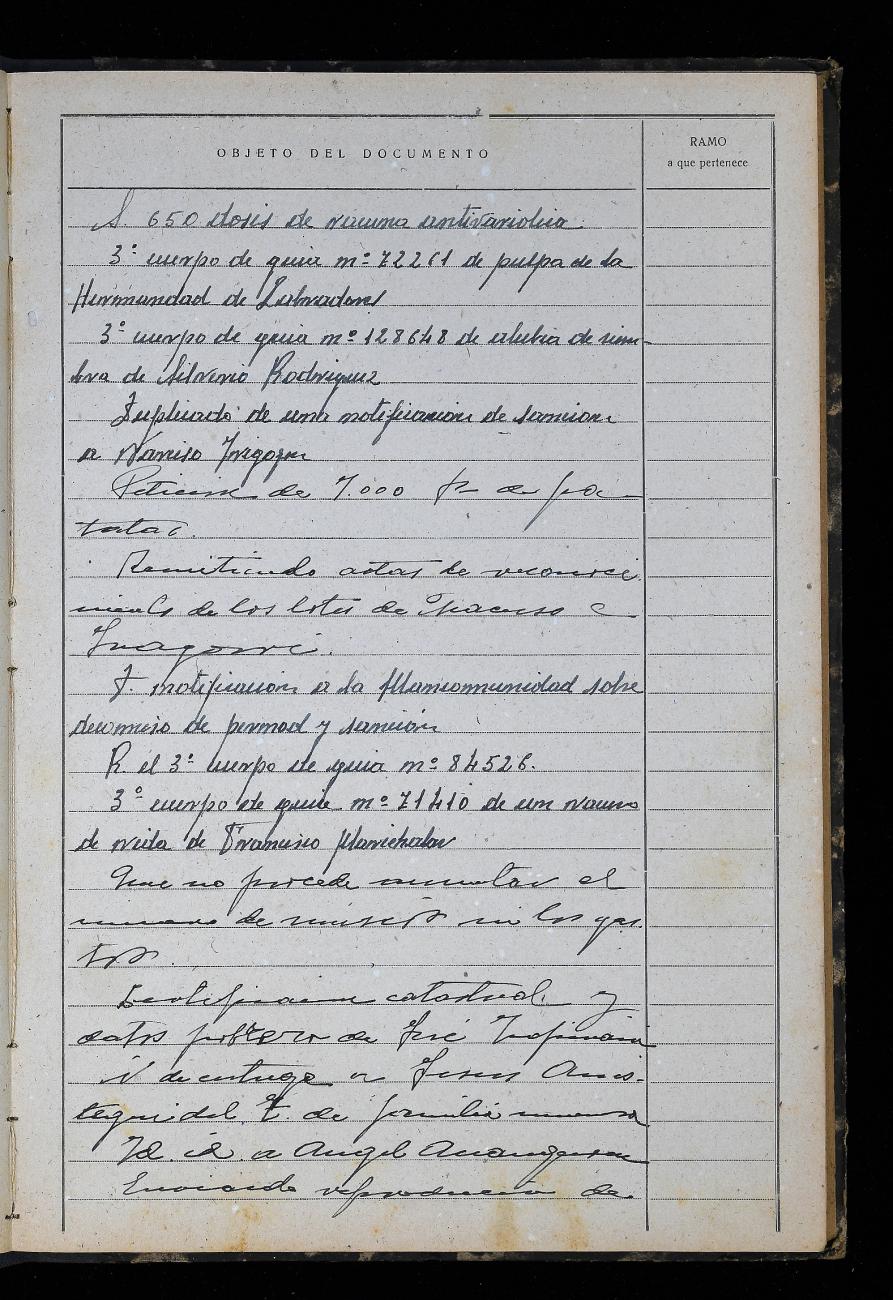 OBJETO DEL DOCUMENTO
RAMO
a que pertenece
S 650 dosis de vacuna antivariolica
3º cuerpo de guia nº 72261 de pulpa de la
Hermandad de Labradores
3º cuerpo de guia nº 128648 de alubia de siem-
bra de Silverio Rodriguez
Duplicado de una notificacion de sancion
a Narciso Irigoyen
Peticion de 7.000 de pa-
tatas.
Remitiendo actas de reconoci
miento de los lotes de
D. notificación a la Mancomunidad sobre
decomiso de y sanción
R. el 3º cuerpo de guia nº 84526.
3º cuerpo de guia nº 71410 de un vacuno
de vida de Francisco Marichalar
Que no procede aumentar el
numero de ni los gas-
tos.
Certificacion catastral y
datos de José
de entrega a Jesus Ames-
tegui del T. de familia numerosa
Id. id. a Angel
Enviando de